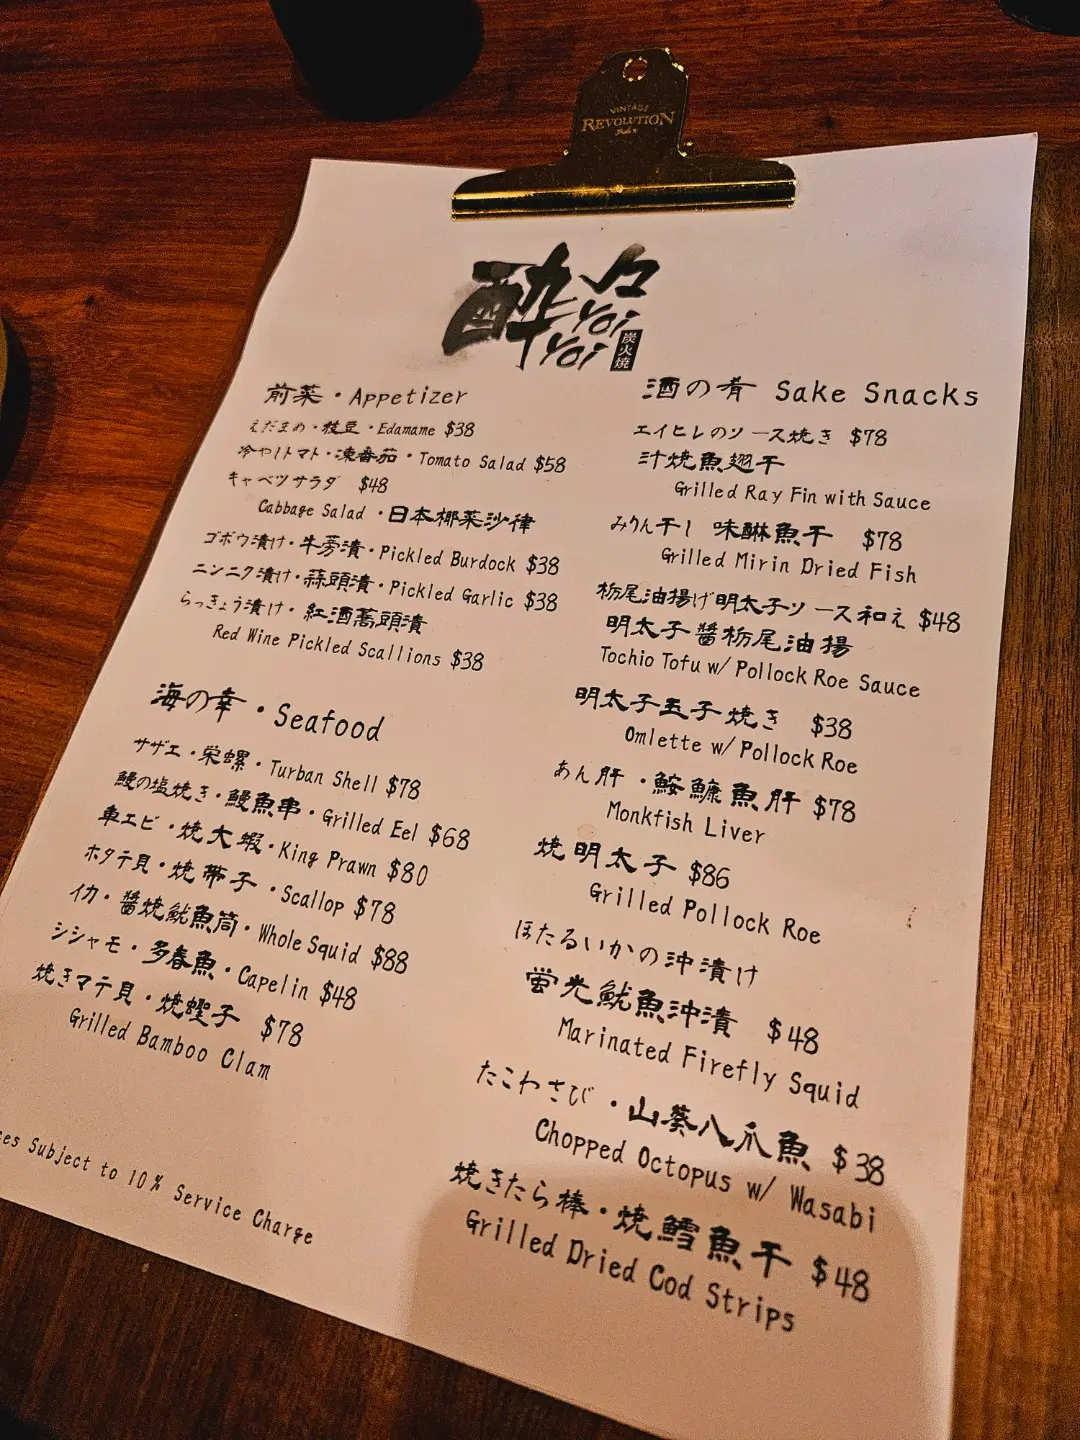 VINTAGE
REVOLUTION
酔々
yoi
yoi
炭火焼
前菜・Appetizer
えだまめ・枝豆・Edamame $38
冷やしトマト・凍番茄・Tomato Salad $58
キャベツサラダ $48
Cabbage Salad・日本椰菜沙律
ゴボウ漬け・牛蒡漬・Pickled Burdock $38
ニンニク漬け・蒜頭漬・Pickled Garlic $38
らっきょう漬け・紅酒蕎頭漬
Red Wine Pickled Scallions $38
海の幸・Seafood
サザエ・栄螺・Turban Shell $78
鰻の塩焼き・鰻魚串・Grilled Eel $68
車エビ・焼大蝦・King Prawn $80
ホタテ貝・焼帶子・Scallop $78
イカ・醬焼魷魚筒・Whole Squid $88
シシャモ・多春魚・Capelin $48
焼きマテ貝・焼蟶子 $78
Grilled Bamboo Clam
Subject to 10% Service Charge
酒の肴 Sake Snacks
エイヒレのソース焼き $78
汁焼魚翅干
Grilled Ray Fin with Sauce
みりん干し 味醂魚干 $78
Grilled Mirin Dried Fish
栃尾油揚げ明太子ソース和え $48
明太子醬栃尾油揚
Tochio Tofu w/ Pollock Roe Sauce
明太子玉子焼き $38
Omlette w/ Pollock Roe
あん肝・鮟鱇魚肝 $78
Monkfish Liver
焼明太子 $86
Grilled Pollock Roe
ほたるいかの沖漬け
螢光魷魚沖漬 $48
Marinated Firefly Squid
たこわさび・山葵八爪魚 $38
Chopped Octopus w/ Wasabi
焼きたら棒・焼鱈魚干 $48
Grilled Dried Cod Strips